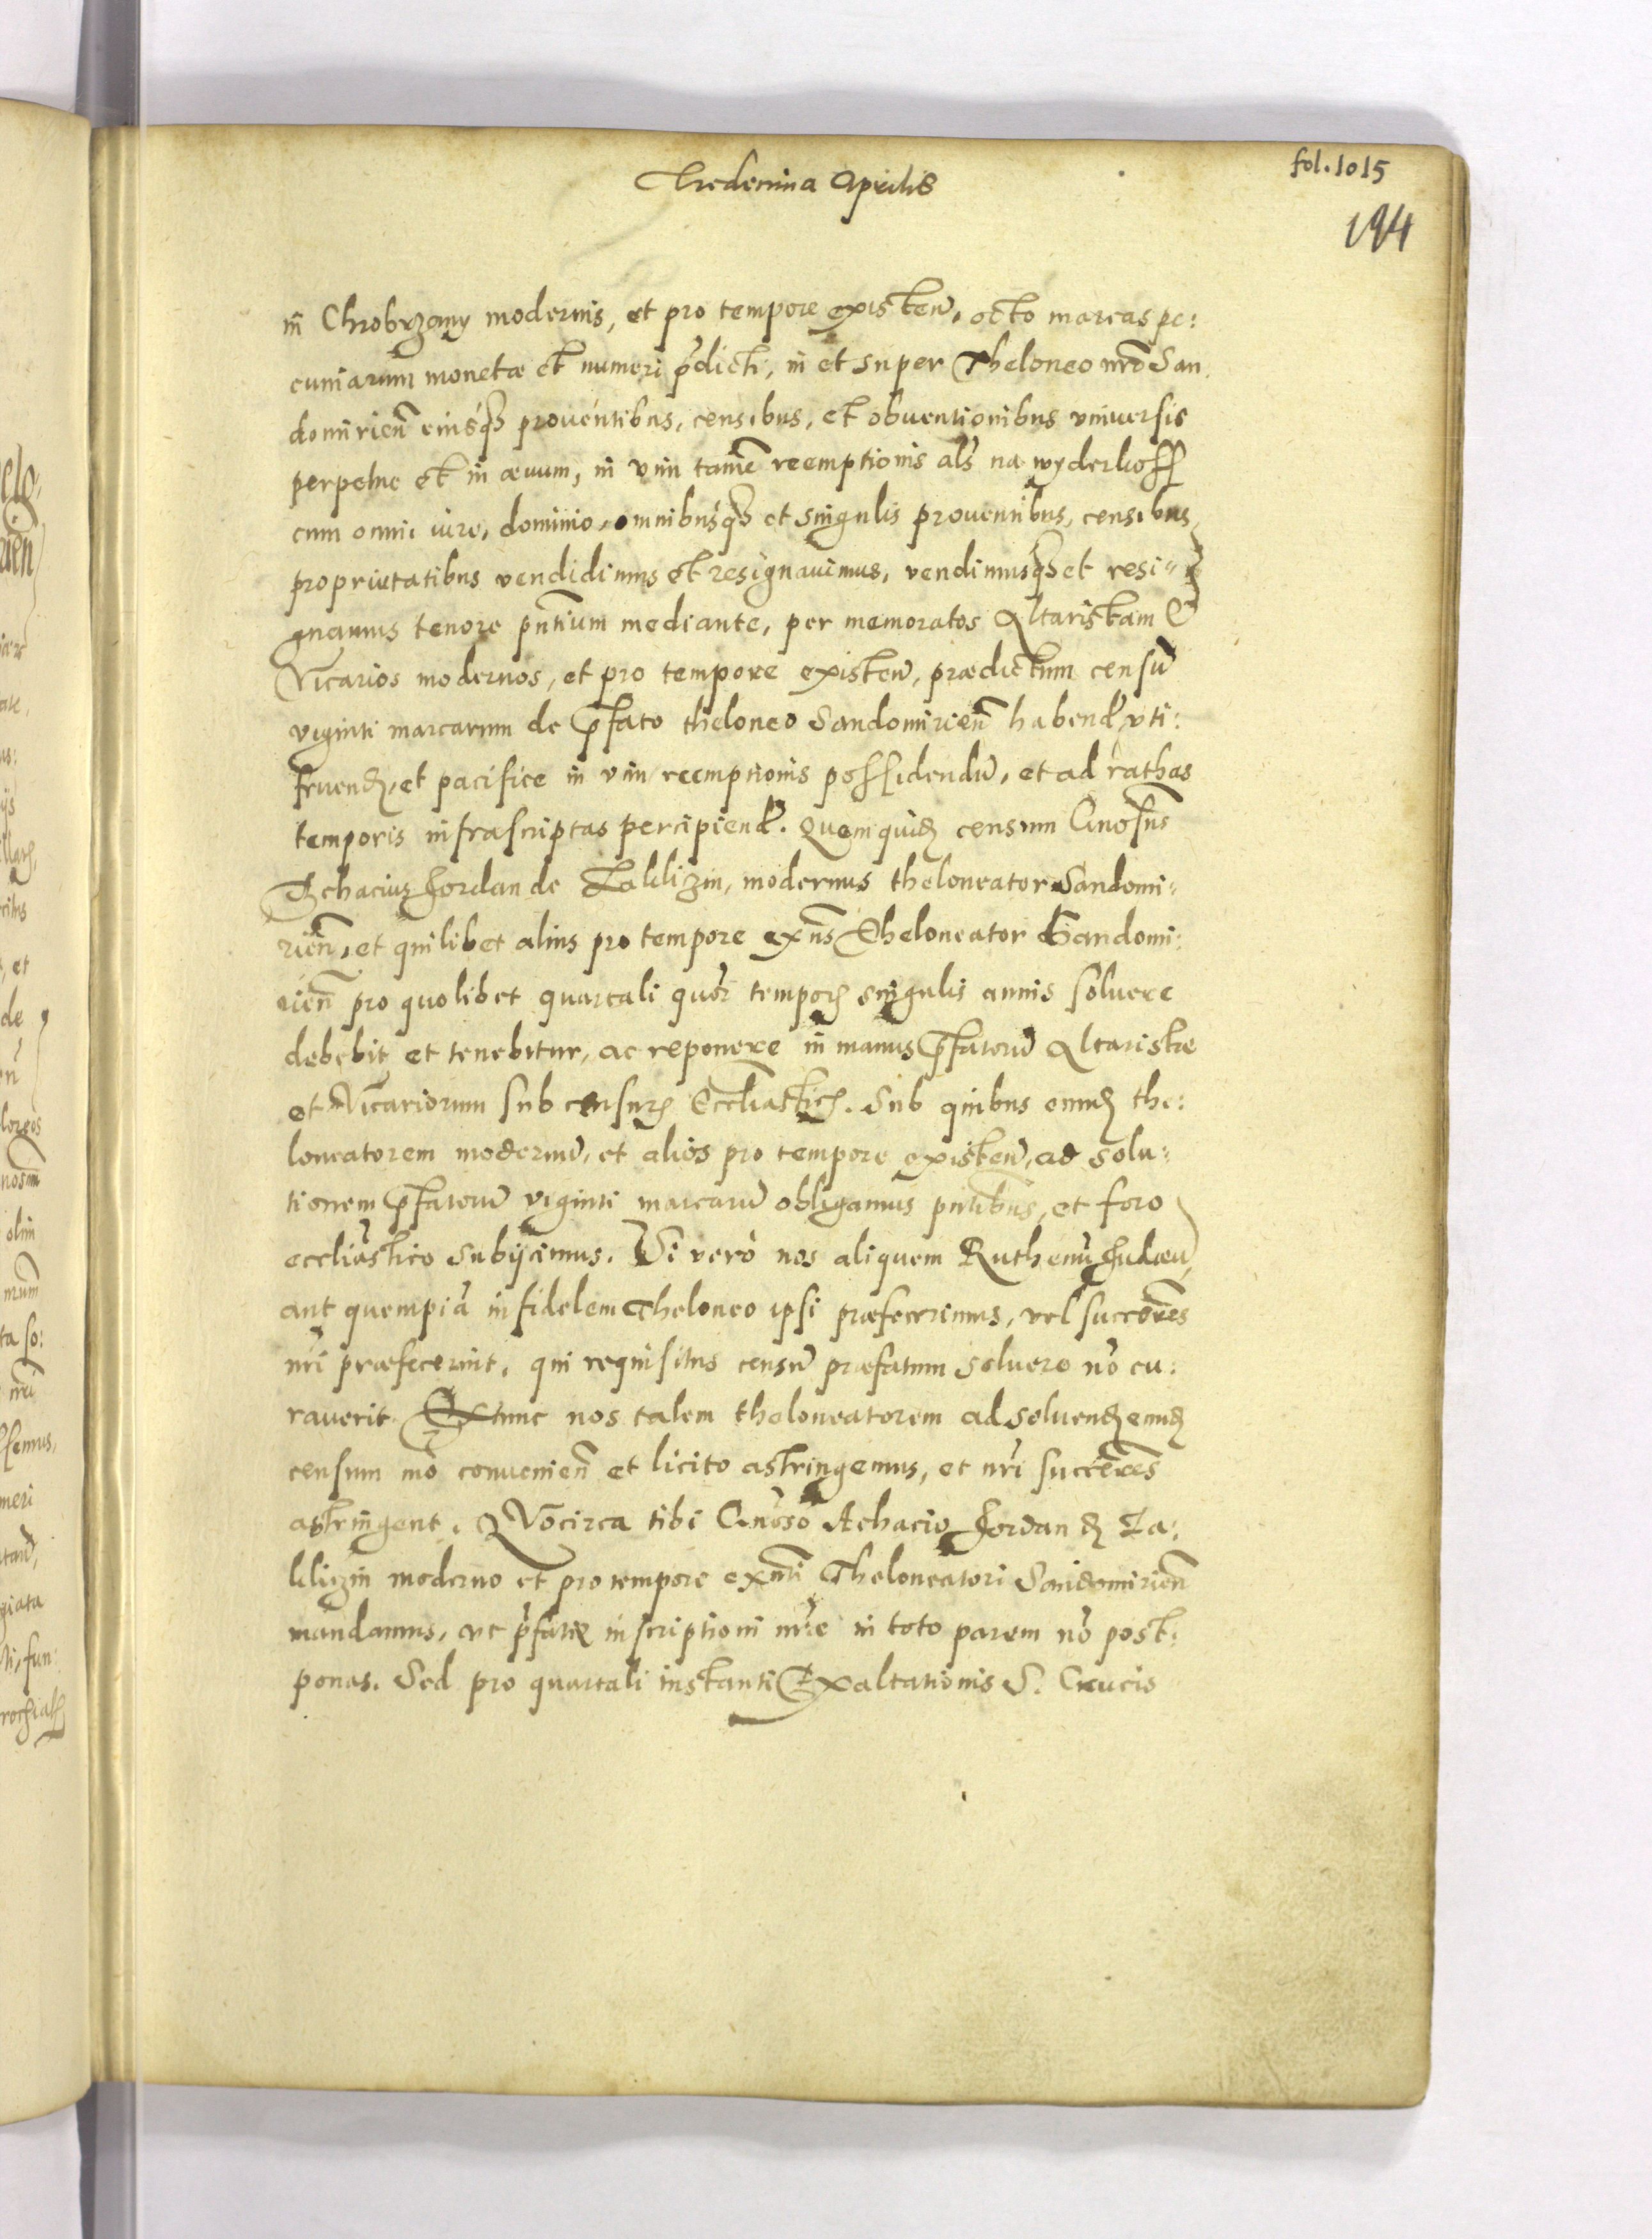 fol. 1015
Tredecima Aprilis
194
in Chrobrzany modernis, et pro tempore existeñ, octo marcas pe:
cuniarum monetæ et numeri p̃dicti, in et super Theloneo nrõ San
domirień eiusq̃ proventibus, censibus, et obventionibus vniversis
perpetue et in ævum, in vim tamẽ reemptionis als na wyderkoff
cum omni iure, dominio, omnibusq̃ et singulis proventibus, censibus,
proprietatibus vendidimus et resignavimus, vendimusq̃ et resi-
gnamus tenore pñtium mediante, per memoratos Altaristam et
Vicarios modernos, et pro tempore existeñ, prædictum censũ
viginti marcarum de p̃fato theloneo Sandomirień habend, vti:
fruend, et pacifice in vim reemptionis possidendũ, et ad rathas
temporis infrascriptas percipiend. Quem quid censum Gnosus
Achacius Jordan de Zakliczin, modernus theloneator Sandomi:
rień, et quilibet alius pro tempore exñs Theloneator Sandomi:
rień pro quolibet quartali quor tempor singulis annis solvere
debebit et tenebitur, ac reponere in manus p̃fatorũ Altaristæ
et Vicariorum sub censur Eccliastic. Sub quibus eund the:
loneatorem modernũ, et alios pro tempore existeñ, ad solu:
tionem p̃fatorũ viginti marcarũ obligamus pñtibus, et foro
eccliastico subijcimus. Si verò nos aliquem Ruthenũ Judæũ,
aut quempiã infidelem Theloneo ipsi præfecerimus, vel succores
nri præfecerint, qui requisitus censũ præfatum solvere nõ cu:
raverit. Extunc nos talem theloneatorem ad solvend eund
censum mõ convenień et licito astringemus, et nri succeres
astringent. Quocirca tibi Gnoso Achacio Jordan d Za:
kliczin moderno et pro tempore exñti Theloneatori Sandomirień
mandamus, vt p̃fatæ inscriptioni nræ in toto parem nõ post:
ponas. Sed pro quartali instanti Exaltationis S. Crucis